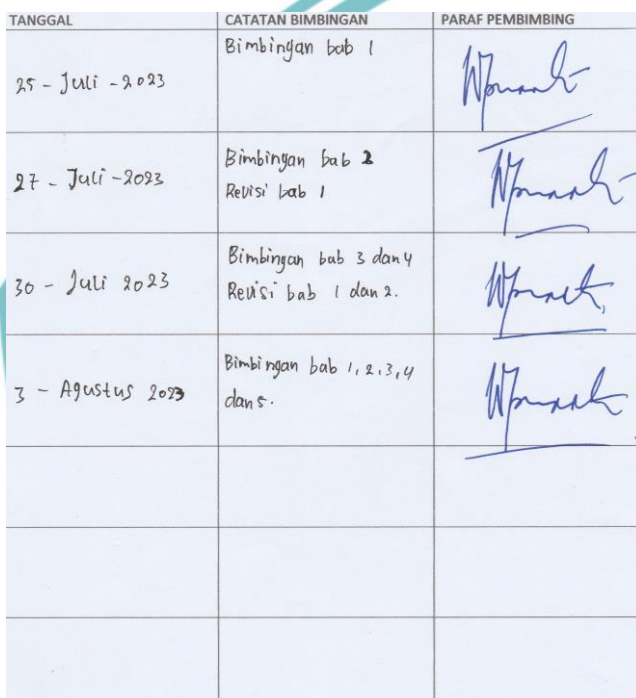 TANGGAL CATATAN BIMBINGAN PARAF PEMBIMBING
25 - Juli - 2023 Bimbingan bab 1
27 - Juli - 2023 Bimbingan bab 2
Revisi bab 1
30 - Juli 2023 Bimbingan bab 3 dan 4
Revisi bab 1 dan 2.
3 - Agustus 2023 Bimbingan bab 1, 2, 3, 4
dan 5.